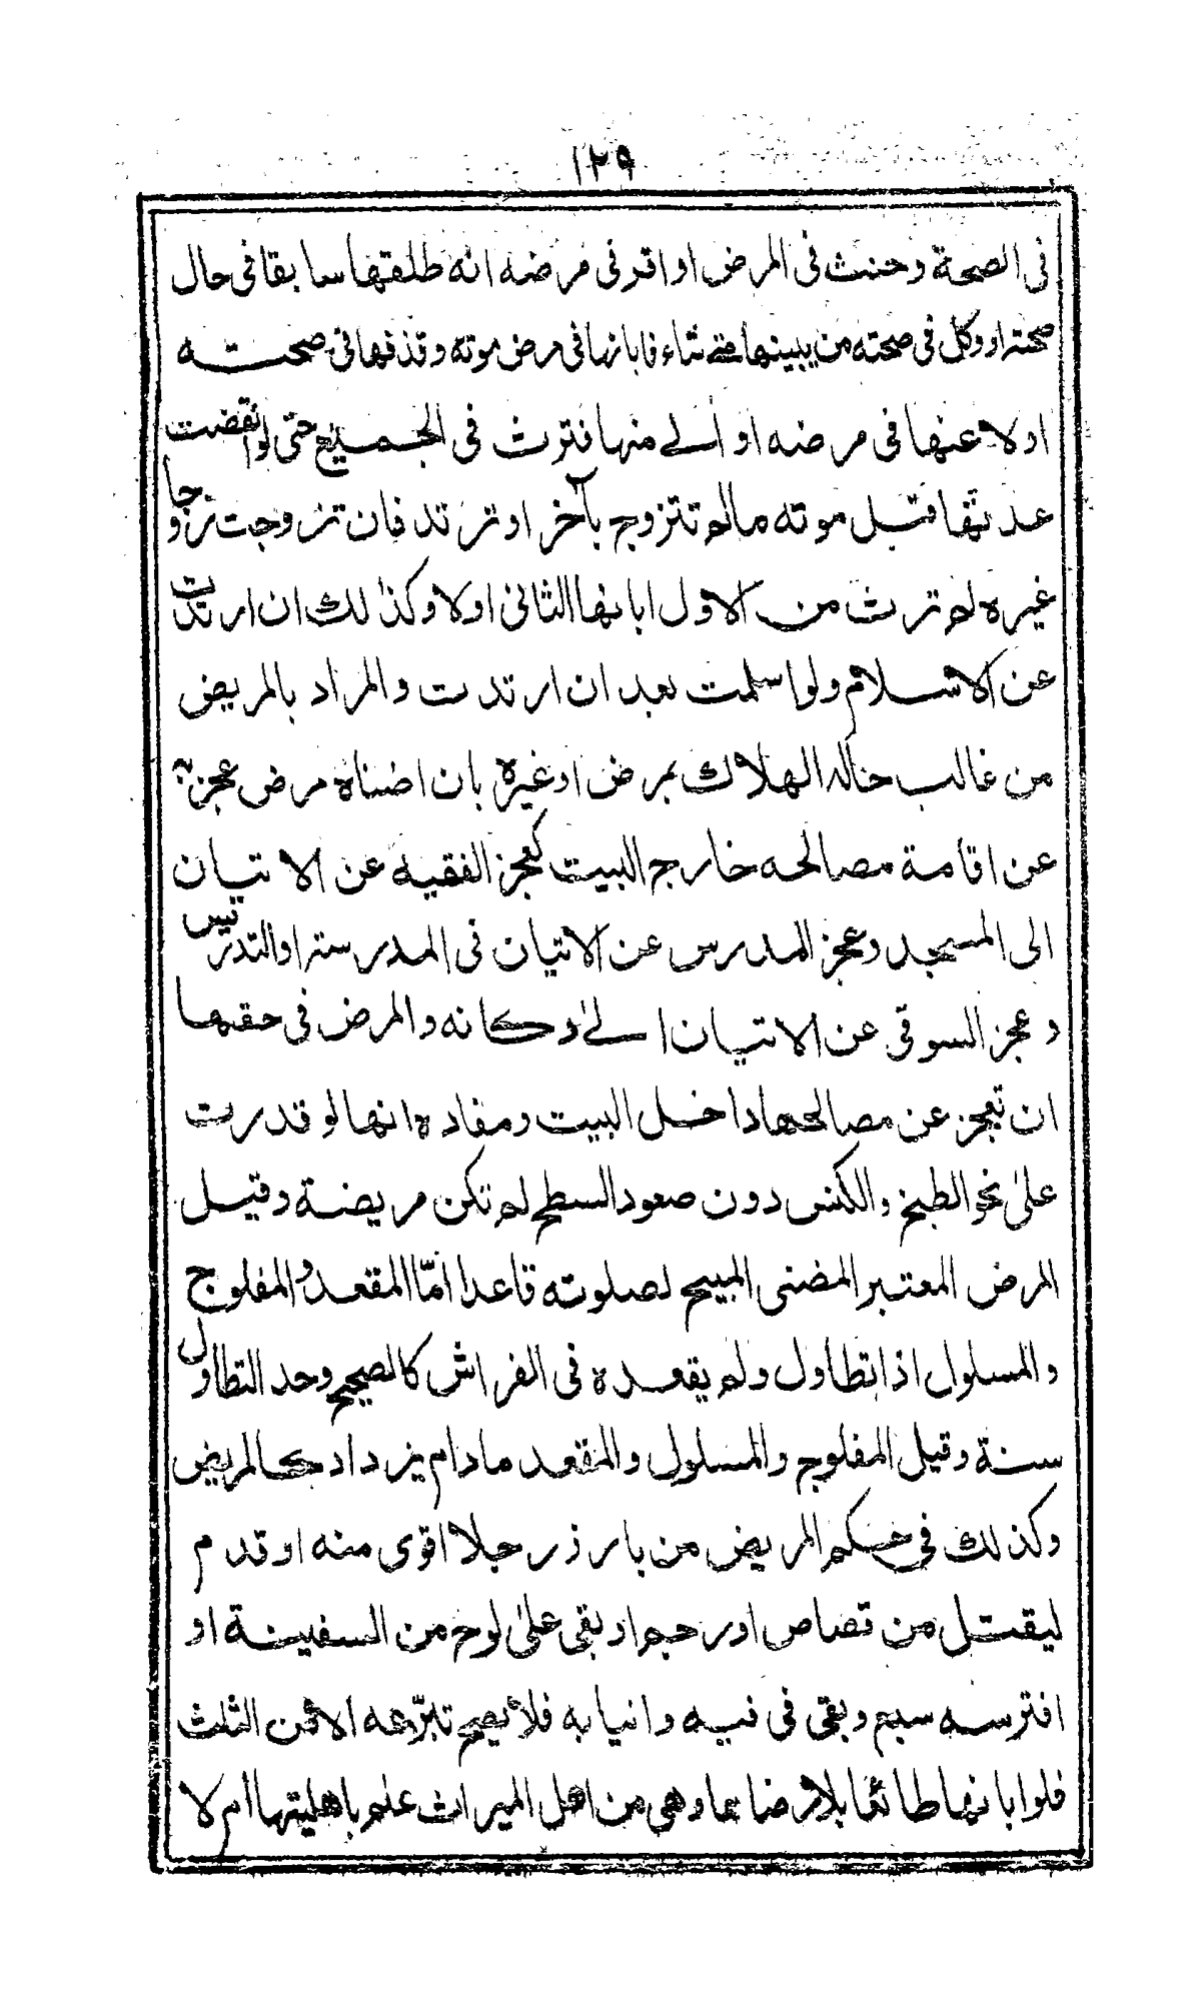 ١٢٩
فى الصحة وحنث فى المرض او اقر فى مرضه انه طلقها سابقا فى حال
صحته او وكل فى صحته من يبينها متے شاء فابانها فى مرض موته وقذفها فى صحته
اولا عنها فى مرضه او اٰلے منها فترث فى الجميع حتى لو انقضت
عدتها قبل موته مالم تتزوج بآخر او ترتد فان تزوجت زوجا
غيره لم ترث من الاول ابانها الثانى اولا وكذٰلك ان ارتدت
عن الاسلام ولو اسلمت بعد ان ارتدت والمراد بالمريض
من غالب حاله الهلاك بمرض او غيره بان اضناه مرض عجز به
عن اقامة مصالحه خارج البيت كعجز الفقيه عن الاتيان
الى المسجد وعجز المدرس عن الاتيان فى المدرسة او التدريس
وعجز السوقى عن الاتيان الےٰ دكانه والمرض فى حقها
ان تعجز عن مصالحها داخل البيت ومفاده انها لو قدرت
علىٰ نحو الطبخ والكنس دون صعود السطح لم تكن مريضة وقيل
المرض المعتبر المضنى المبيح لصلوته قاعدا امّا المقعد والمفلوج
والمسلول اذا تطاول ولم يقعده فى الفراش كالصحيح وحد التطاول
سنة وقيل المفلوج والمسلول والمقعد مادام يزداد كالمريض
وكذلك فى حكم المريض من بارز رجلا اقوى منه او قدم
ليقتل من قصاص او رجم او بقى علىٰ لوح من السفينة او
افترسه سبع وبقى فى فيه وانيابه فلا يصح تبرّعه الا من الثلث
فلو ابانها طائعا بلا رضاها وهى من اهل الميراث علم باهليتها ام لا